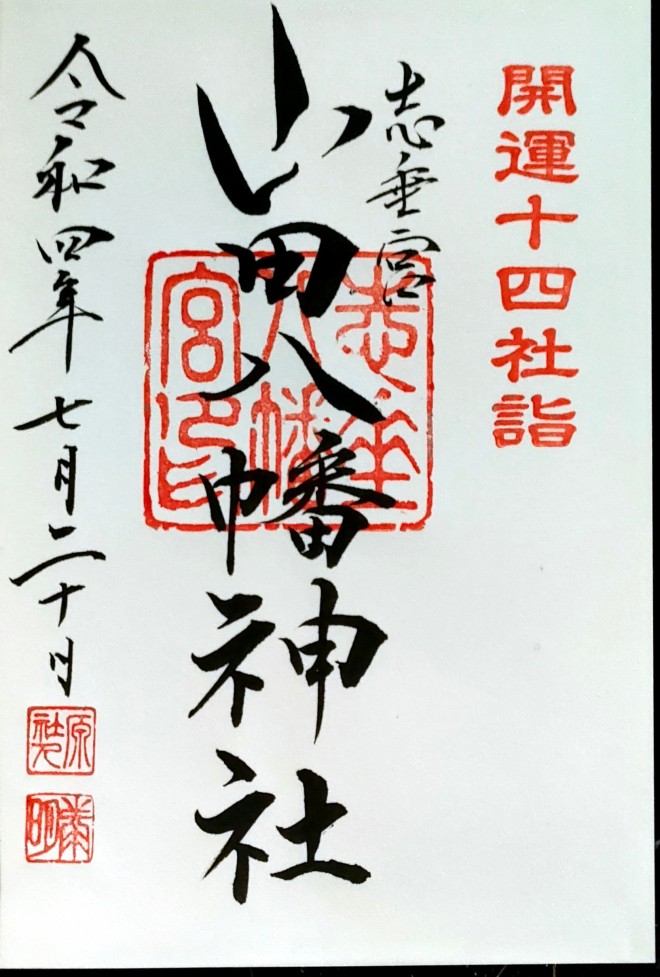 開運十四社詣
志垂宮
山田八幡神社
志垂
八幡
宮印
令和四年七月二十日